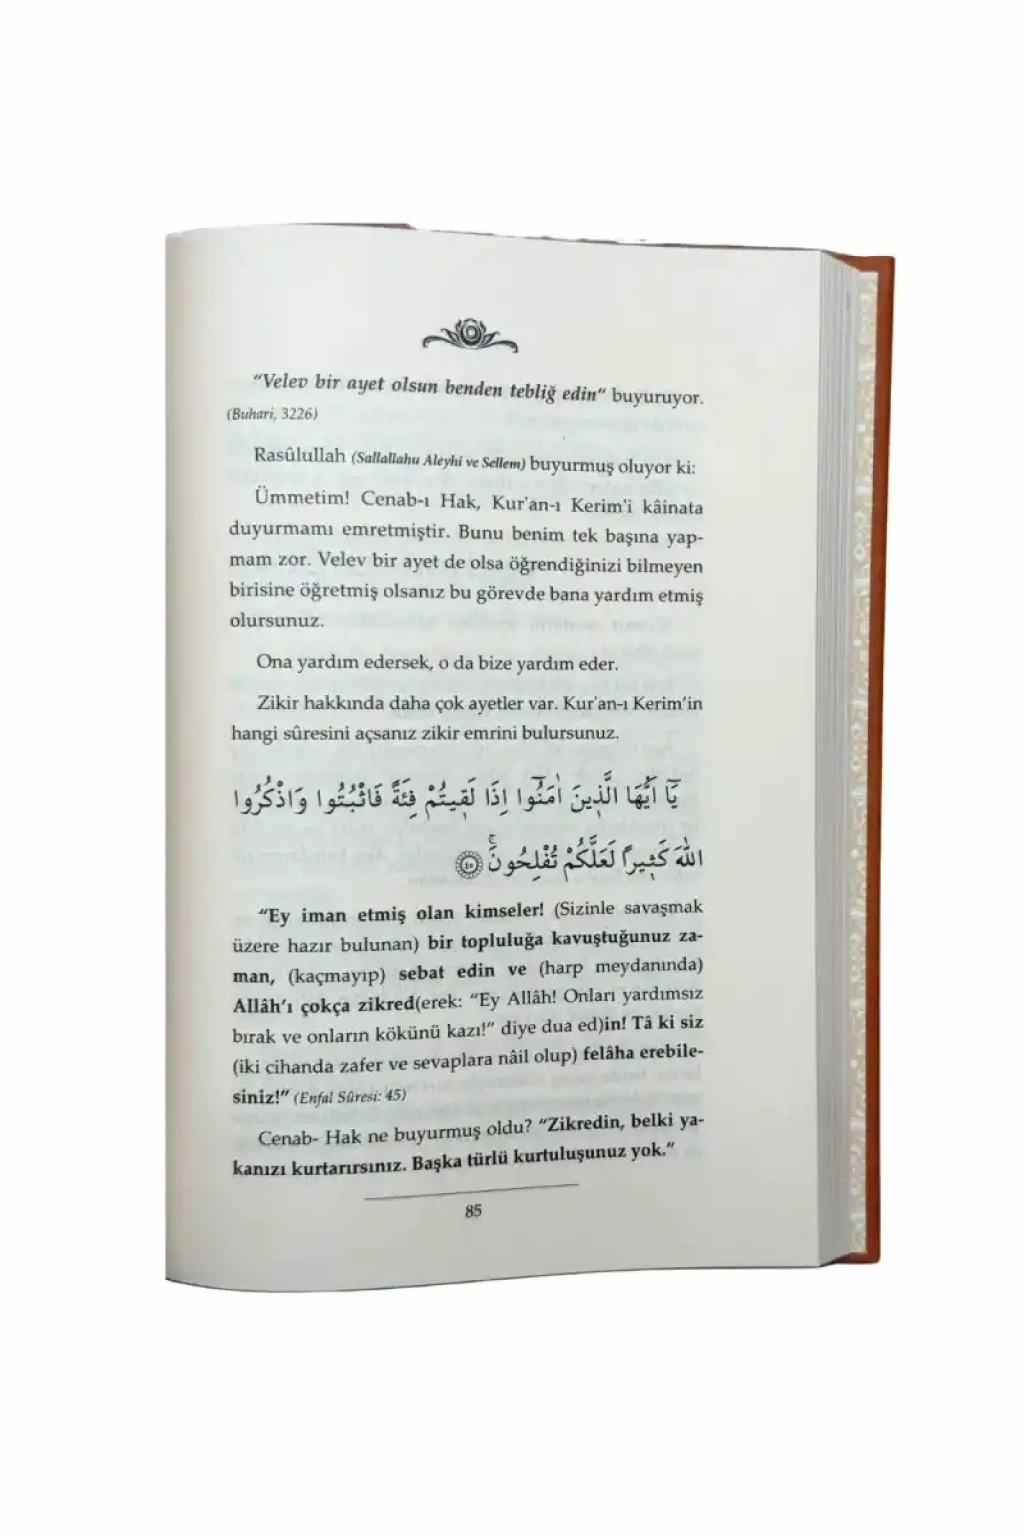 "Velev bir ayet olsun benden tebliğ edin" buyuruyor.
(Buhari, 3226)
Rasûlullah (Sallallahu Aleyhi ve Sellem) buyurmuş oluyor ki:
Ümmetim! Cenab-ı Hak, Kur'an-ı Kerim'i kâinata
duyurmamı emretmiştir. Bunu benim tek başına yap-
mam zor. Velev bir ayet de olsa öğrendiğinizi bilmeyen
birisine öğretmiş olsanız bu görevde bana yardım etmiş
olursunuz.
Ona yardım edersek, o da bize yardım eder.
Zikir hakkında daha çok ayetler var. Kur'an-ı Kerim'in
hangi sûresini açsanız zikir emrini bulursunuz.
يَٓا اَيُّهَا الَّذ۪ينَ اٰمَنُٓوا اِذَا لَق۪يتُمْ فِئَةً فَاثْبُتُوا وَاذْكُرُوا
اللّٰهَ كَث۪يراً لَعَلَّكُمْ تُفْلِحُونَۚ ﴿٤٥﴾
"Ey iman etmiş olan kimseler! (Sizinle savaşmak
üzere hazır bulunan) bir topluluğa kavuştuğunuz za-
man, (kaçmayıp) sebat edin ve (harp meydanında)
Allâh'ı çokça zikred(erek: "Ey Allâh! Onları yardımsız
bırak ve onların kökünü kazı!" diye dua ed)in! Tâ ki siz
(iki cihanda zafer ve sevaplara nâil olup) felâha erebile-
siniz!" (Enfal Sûresi: 45)
Cenab- Hak ne buyurmuş oldu? "Zikredin, belki ya-
kanızı kurtarırsınız. Başka türlü kurtuluşunuz yok."
85